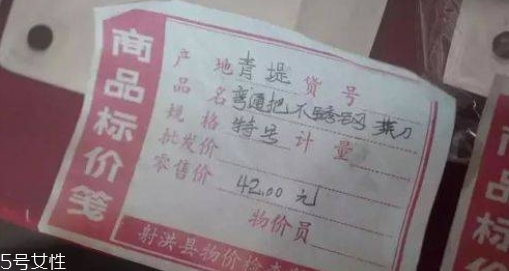 商品标价笺
产地 青堤 货号
品名 弯通把不锈钢菜刀
规格 特号 计量
批发价
零售价 42.00 元
物价员
射洪县物价检查
品
标
5号女性